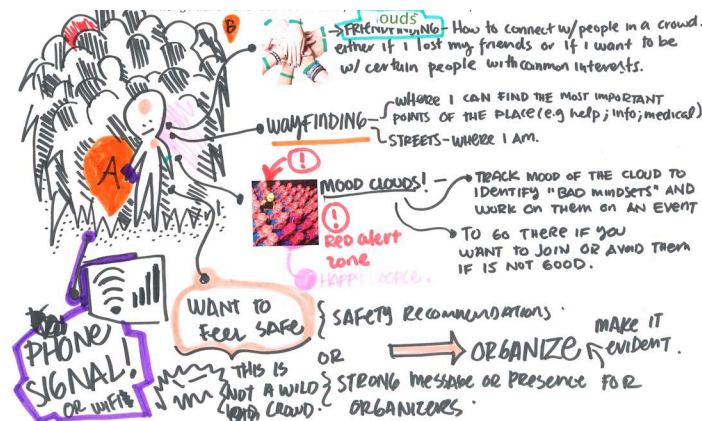 B
ouds
FRIENDFINDING - How to connect w/people in a crowd.
either if i lost my friends or if i want to be
w/ certain people with common interests.
WAYFINDING
WHERE I CAN FIND THE MOST IMPORTANT
POINTS OF THE PLACE (e.g help; info; medical)
STREETS - WHERE I AM.
A
!
MOOD CLOUDS!
TRACK MOOD OF THE CLOUD TO
IDENTIFY "BAD MINDSETS" AND
WORK ON THEM ON AN EVENT
TO GO THERE IF YOU
WANT TO JOIN OR AVOID THEM
IF IS NOT GOOD.
!
RED alert
zone
HAPPY PEOPLE.
WANT TO
FEEL SAFE
SAFETY RECOMMENDATIONS.
OR
STRONG MESSAGE OR PRESENCE FOR
ORGANIZERS.
ORGANIZE
MAKE IT
EVIDENT.
PHONE
SIGNAL!
OR WIFI
THIS IS
NOT A WILD
CROWD.